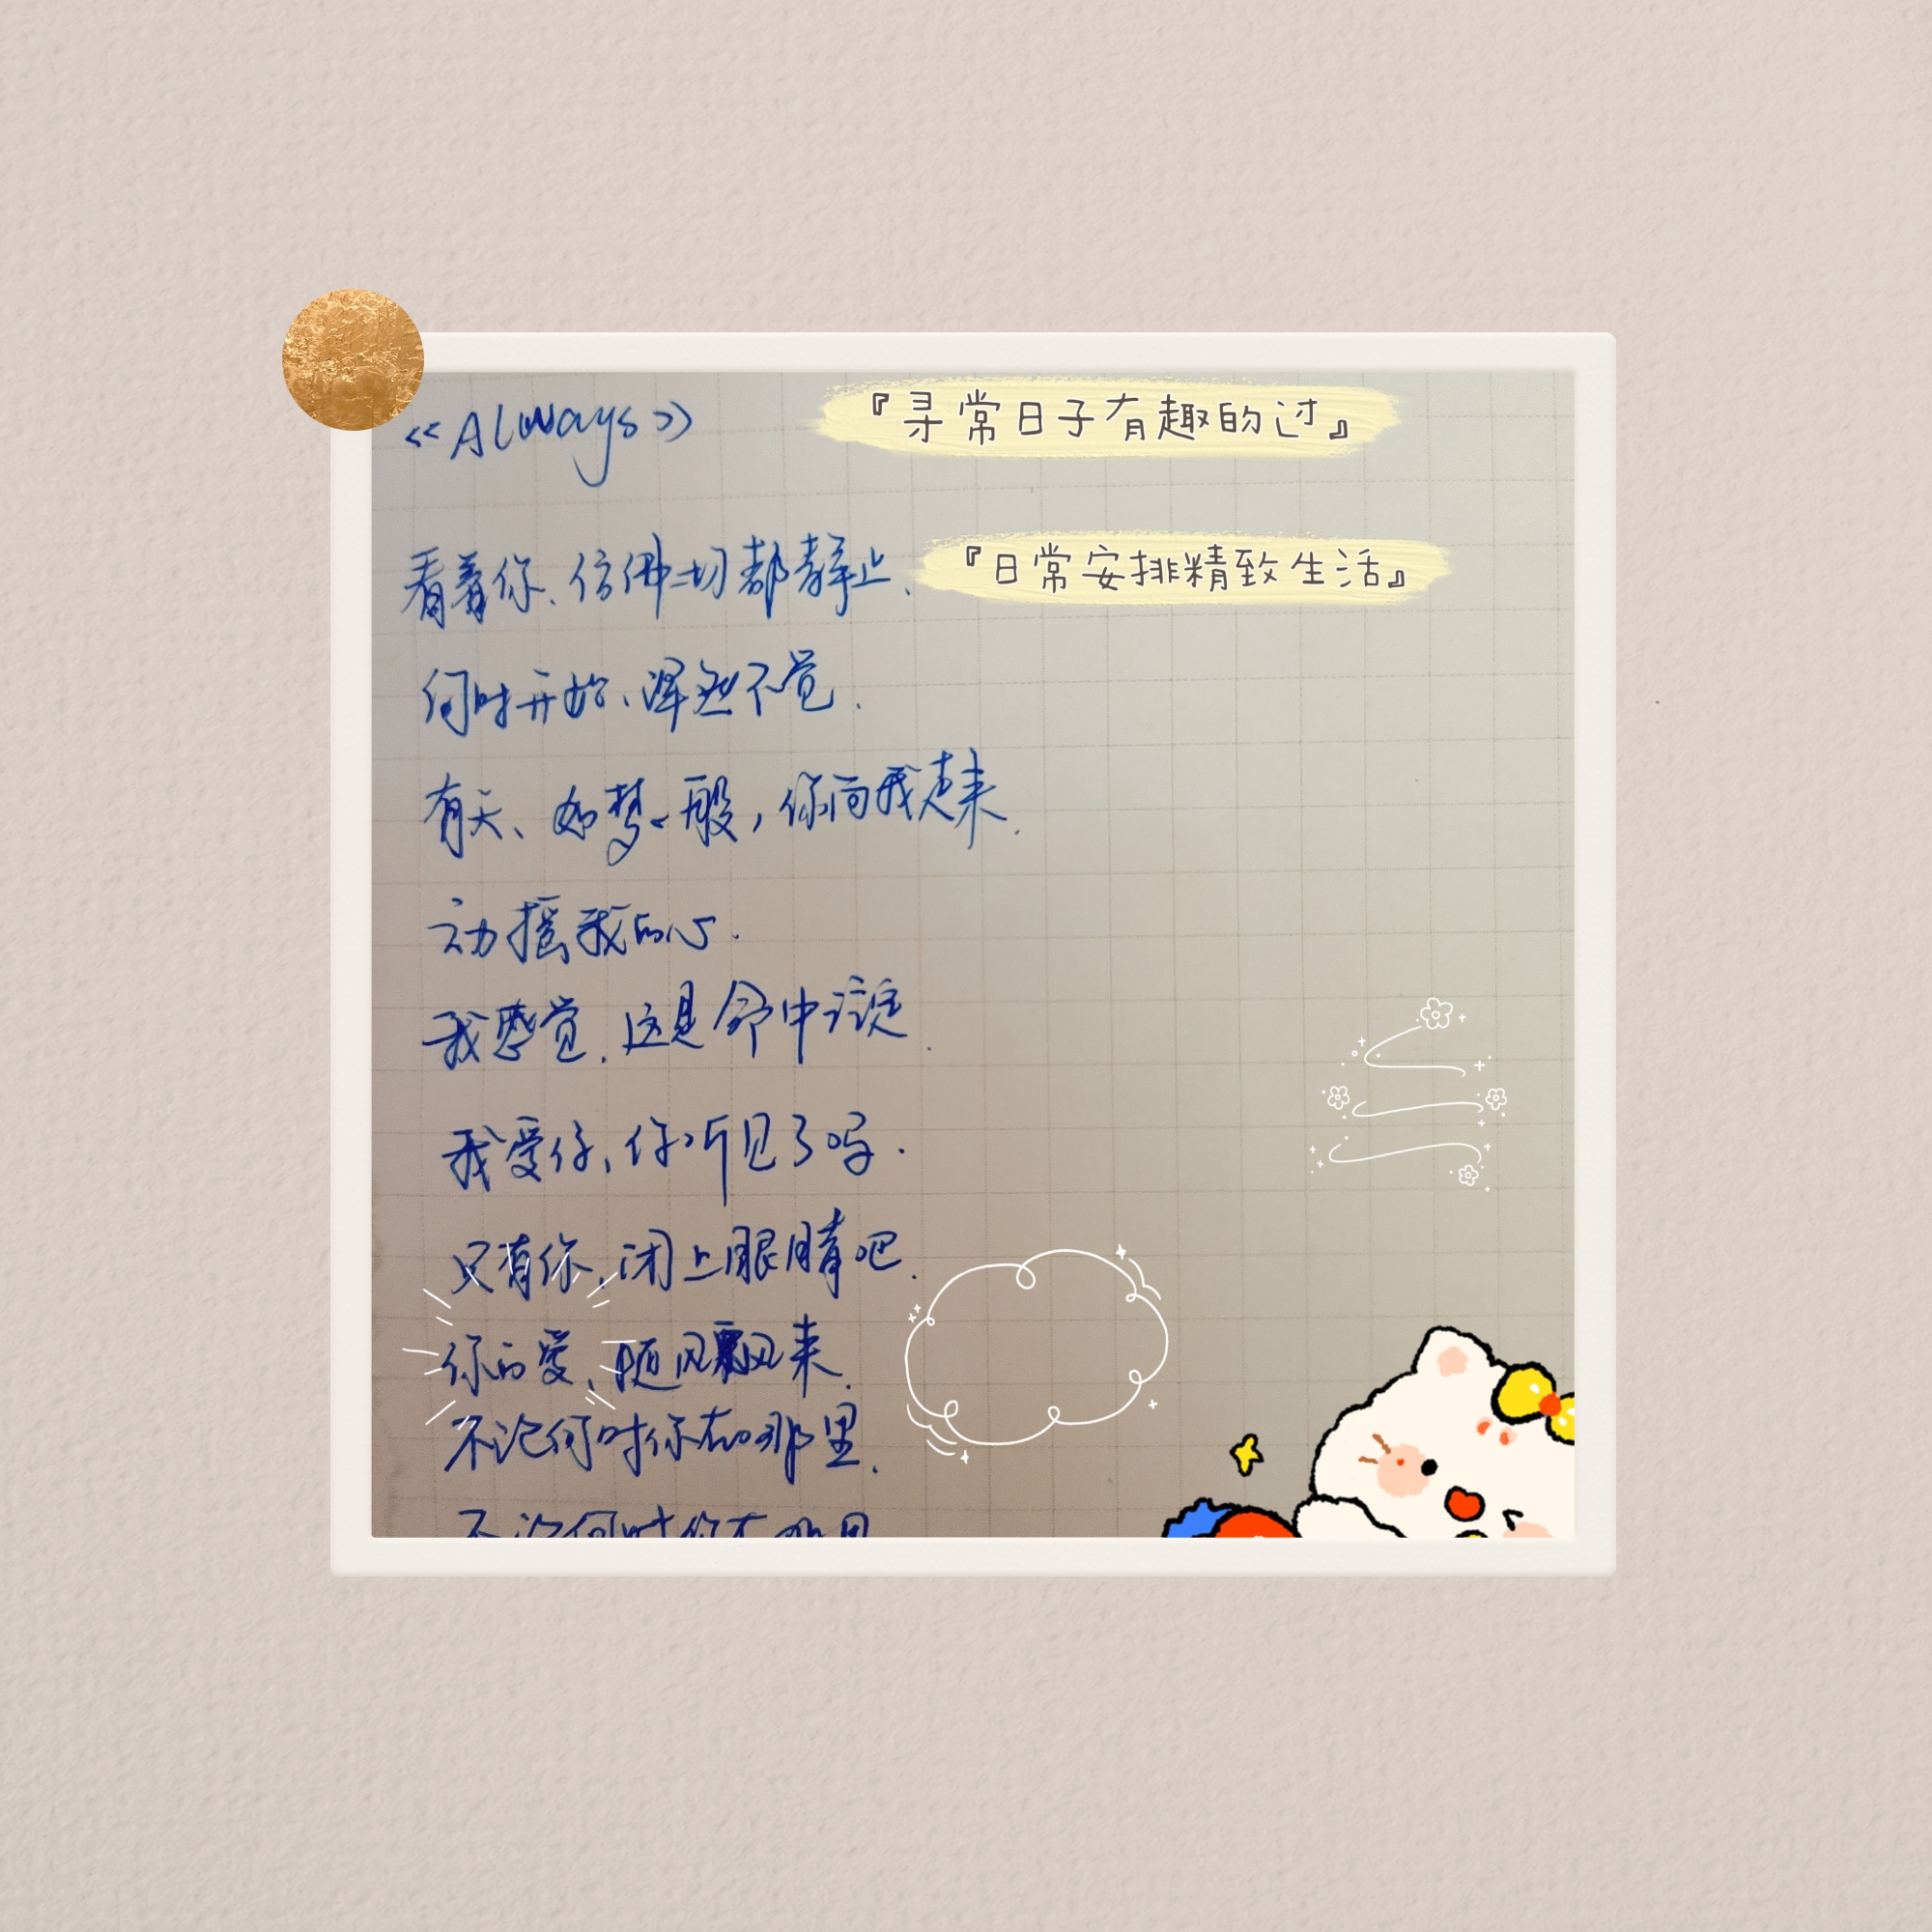 《Always》
『寻常日子有趣的过』
看着你、仿佛一切都静止.
『日常安排精致生活』
何时开始、浑然不觉.
有天、如梦一般，你向我走来.
动摇我的心.
我感觉.这是命中注定.
我爱你,你听见了吗.
只有你.闭上眼睛吧.
你的爱、随风飘来.
不论何时你在那里.
不论何时你在那里